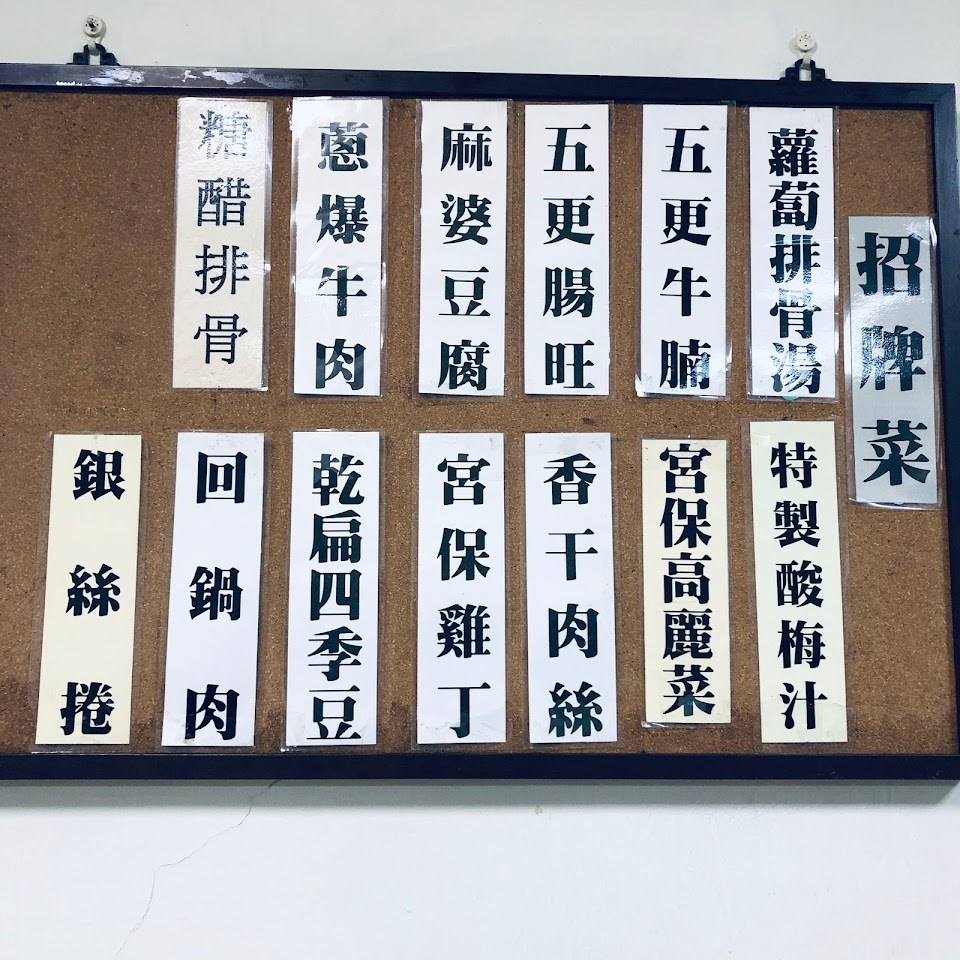 招牌菜
蘿蔔排骨湯
五更牛腩
五更腸旺
麻婆豆腐
蔥爆牛肉
糖醋排骨
特製酸梅汁
宮保高麗菜
香干肉絲
宮保雞丁
乾扁四季豆
回鍋肉
銀絲捲